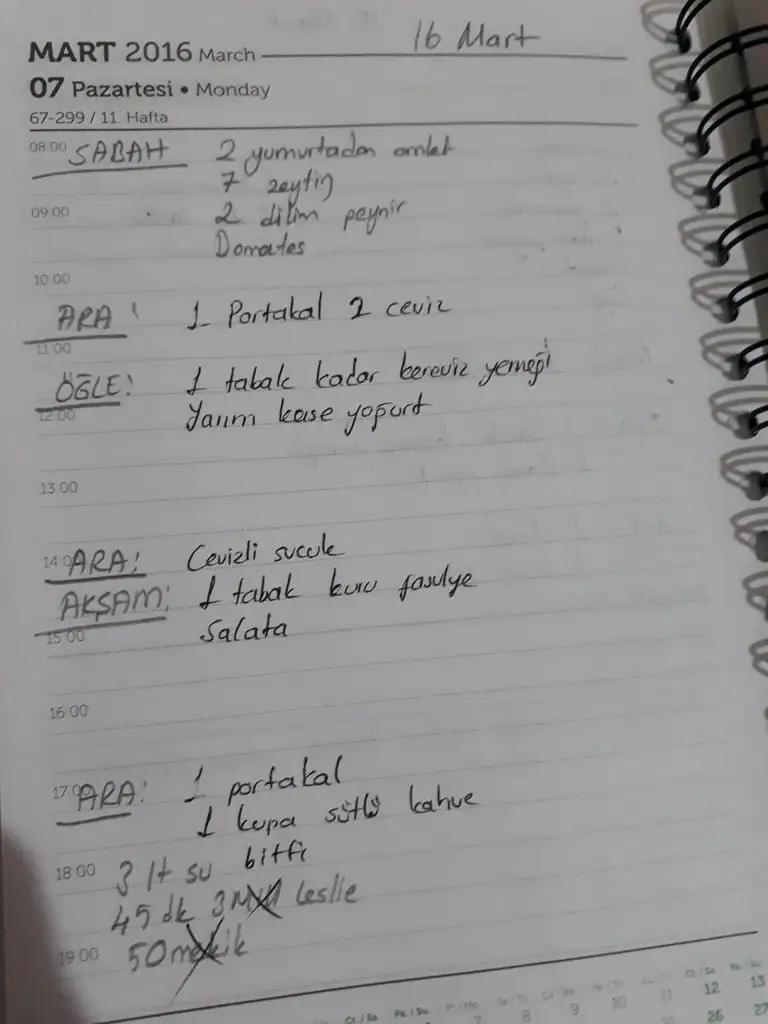 16 Mart
MART 2016 March
07 Pazartesi • Monday
67-299 / 11. Hafta
08:00 SABAH 2 yumurtadan omlet
7 zeytin
09:00 2 dilim peynir
Domates
10:00
ARA: 1 Portakal 2 ceviz
11:00
ÖĞLE: 1 tabak kadar kereviz yemeği
12:00 Yarım kase yoğurt
13:00
14:00 ARA: Cevizli sucuk
AKŞAM: 1 tabak kuru fasulye
15:00 Salata
16:00
17:00 ARA: 1 portakal
1 kupa sütlü kahve
18:00 3 lt su bitti
45 dk 3 Mil Leslie
19:00 50 mekik
7 8 9 10 11 12 13
26 27